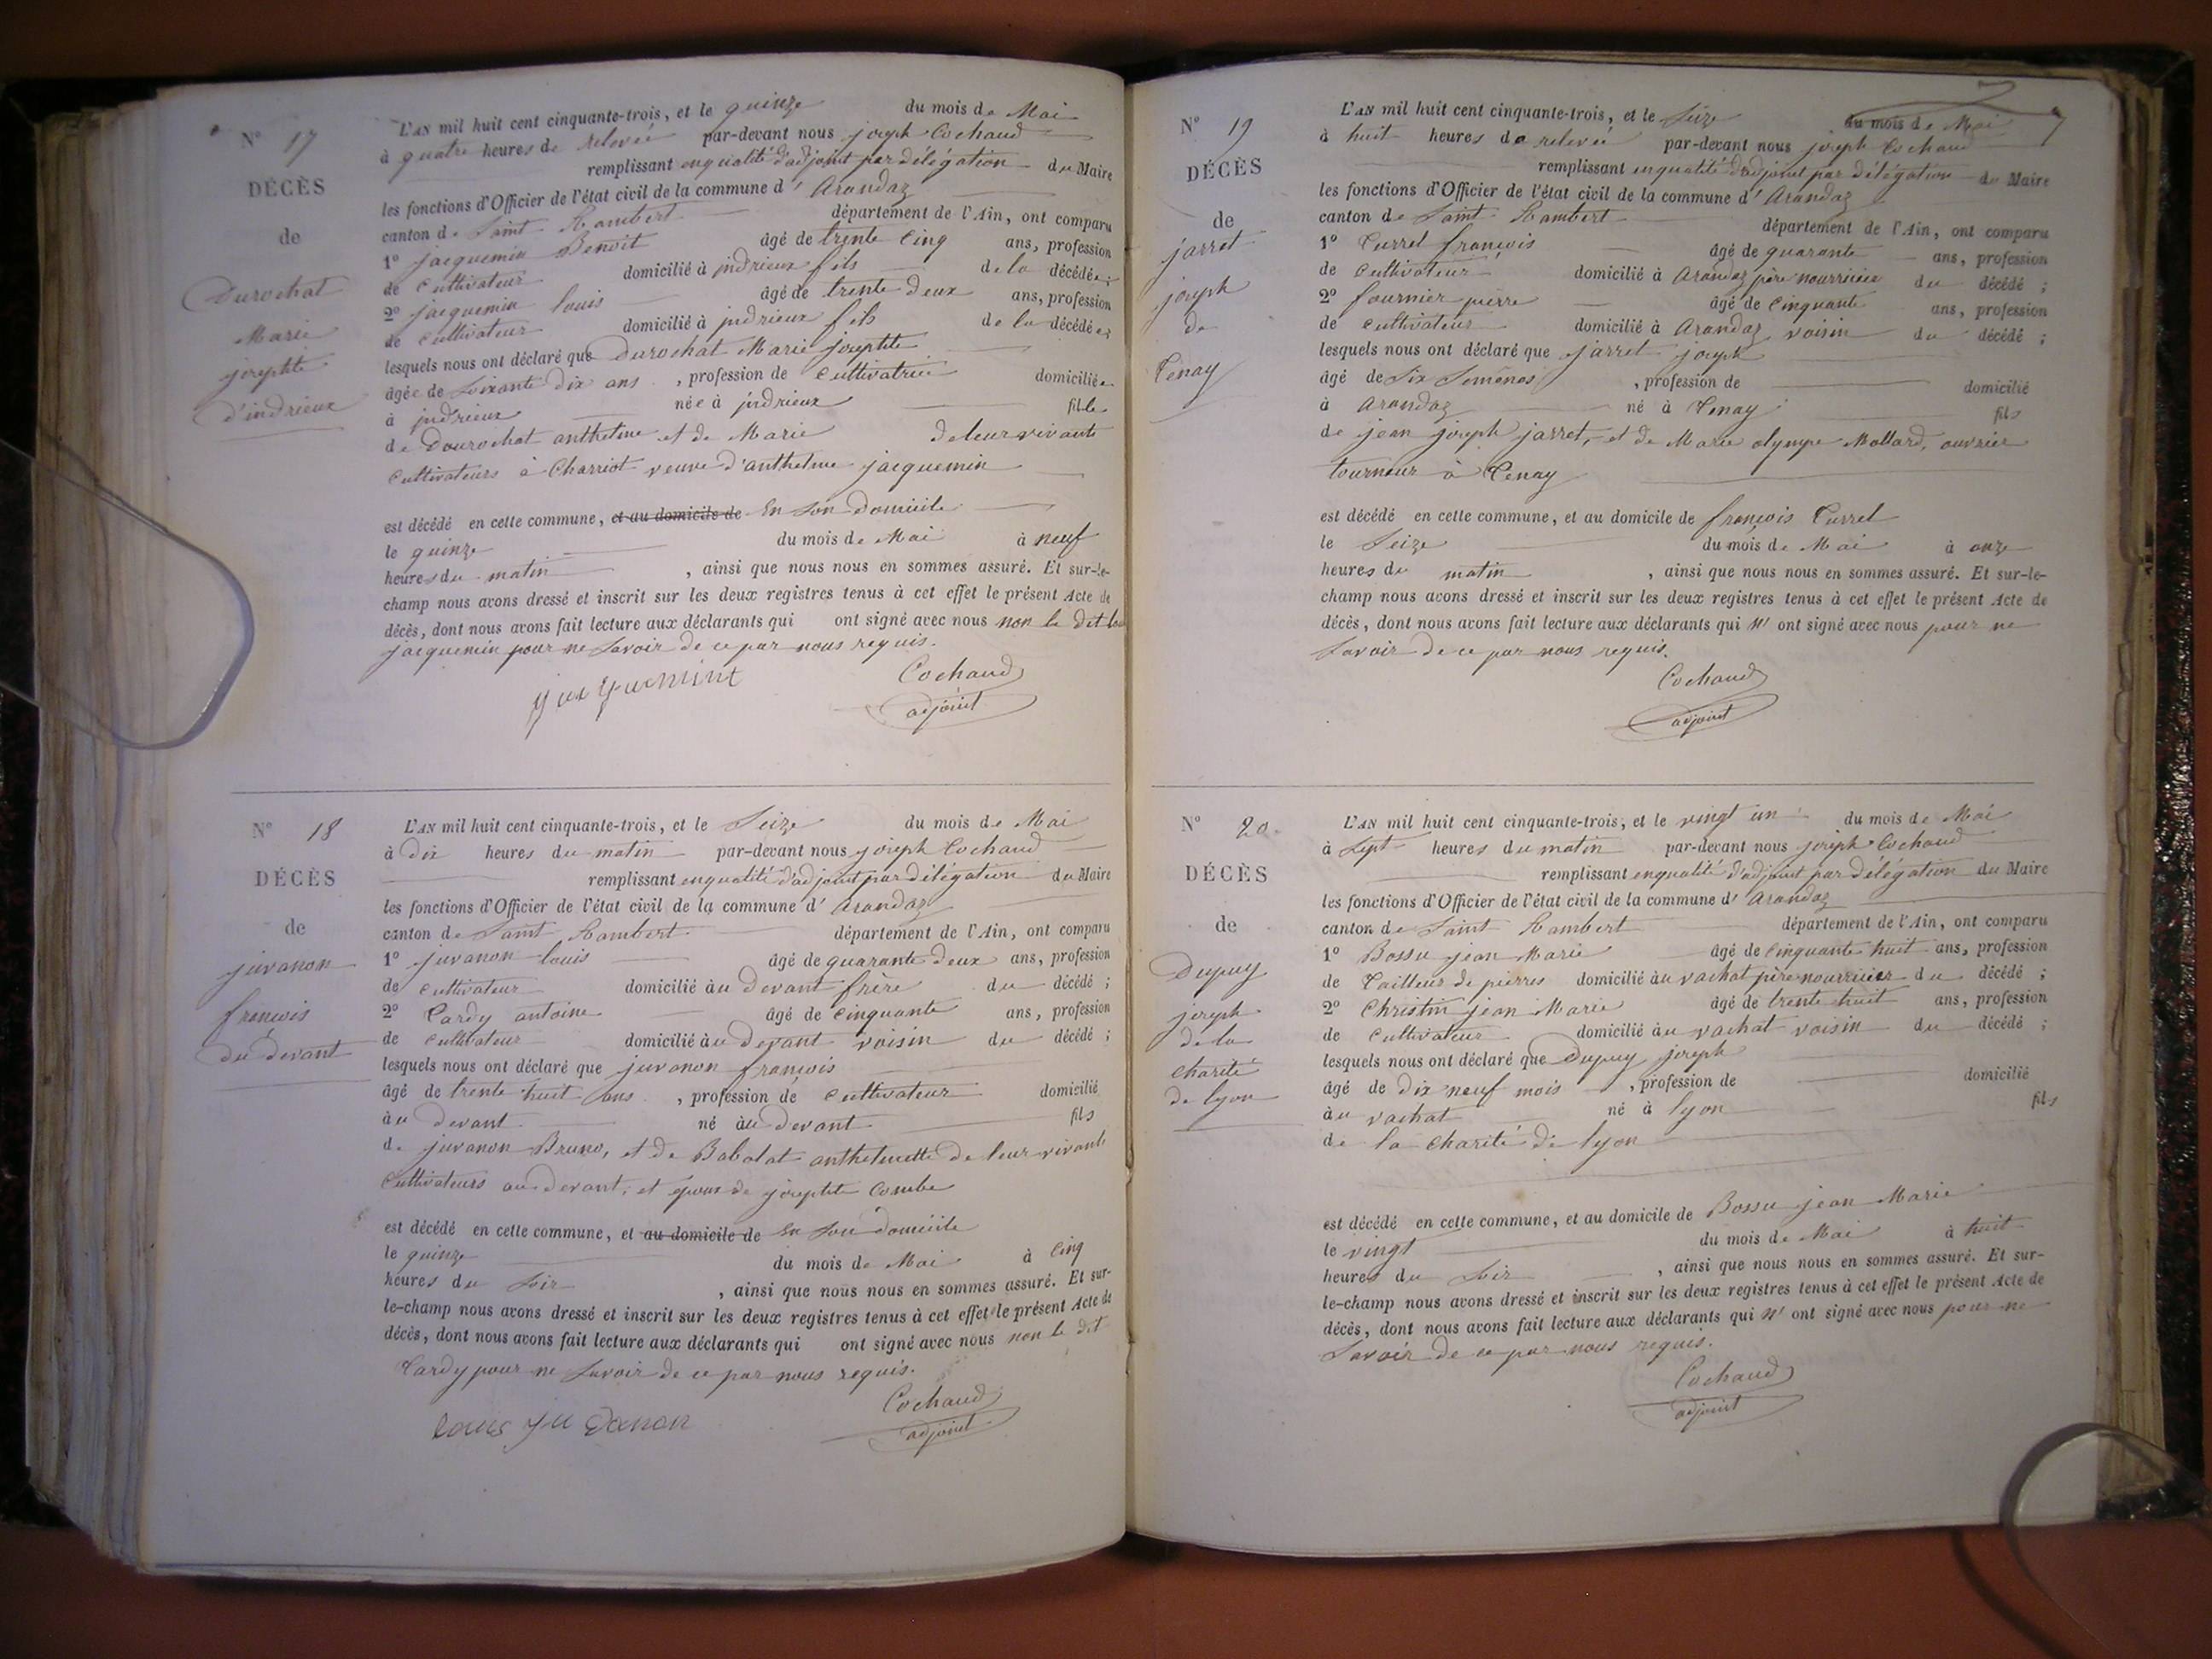 N° 17
DÉCÈS
de
Durochat
Marie
josephte
d'indrieux
L'AN mil huit cent cinquante-trois, et le quinze du mois de Mai
à quatre heures de relevée par-devant nous joseph Cochaud
remplissant enqualité d'adjoint par délégation du Maire
les fonctions d'Officier de l'état civil de la commune d' Arandaz
canton de Saint Rambert département de l'Ain, ont comparu
1° jacquemin Benoit âgé de trente Cinq ans, profession
de Cultivateur domicilié à indrieux fils de la décédée;
2° jacquemin louis âgé de trente deux ans, profession
de Cultivateur domicilié à indrieux fils de la décédée;
lesquels nous ont déclaré que Durochat Marie josephte
âgée de Soixante dix ans, profession de Cultivatrice domiciliée
à indrieux née à indrieux fille
de Dourochat anthelme et de Marie de leur vivants
Cultivateurs à Charriot veuve d'anthelme jacquemin
est décédé en cette commune, et au domicile de En Son Domicile
le quinze du mois de Mai à neuf
heures du matin, ainsi que nous nous en sommes assuré. Et sur-le-
champ nous avons dressé et inscrit sur les deux registres tenus à cet effet le présent Acte de
décès, dont nous avons fait lecture aux déclarants qui ont signé avec nous non le dit
jacquemin pour ne Savoir de ce par nous requis.
Cochaud
adjoint
N° 18
DÉCÈS
de
juvanon
françois
du devant
L'AN mil huit cent cinquante-trois, et le Seize du mois de Mai
à Dix heures du matin par-devant nous joseph Cochaud
remplissant enqualité d'adjoint par délégation du Maire
les fonctions d'Officier de l'état civil de la commune d' Arandaz
canton de Saint Rambert département de l'Ain, ont comparu
1° juvanon louis âgé de quarante deux ans, profession
de Cultivateur domicilié àu Devant frère du décédé;
2° Tardy antoine âgé de Cinquante ans, profession
de Cultivateur domicilié àu Devant voisin du décédé;
lesquels nous ont déclaré que juvanon françois
âgé de trente huit ans, profession de Cultivateur domicilié
àu Devant né àu Devant fils
de juvanon Bruno, et de Babolat anthelmette de leur vivant
Cultivateurs au devant, et époux de josephte Combe
est décédé en cette commune, et au domicile de En Son Domicile
le quinze du mois de Mai à Cinq
heures du Soir, ainsi que nous nous en sommes assuré. Et sur-
le-champ nous avons dressé et inscrit sur les deux registres tenus à cet effet le présent Acte de
décès, dont nous avons fait lecture aux déclarants qui ont signé avec nous non le dit
Tardy pour ne Savoir de ce par nous requis.
Cochaud
louis juvanon adjoint
N° 19
DÉCÈS
de
jarret
joseph
de
Tenay
L'AN mil huit cent cinquante-trois, et le Seize du mois de Mai
à huit heures de relevée par-devant nous joseph Cochaud
remplissant enqualité d'adjoint par délégation du Maire
les fonctions d'Officier de l'état civil de la commune d' Arandaz
canton de Saint Rambert département de l'Ain, ont comparu
1° Curret françois âgé de quarante ans, profession
de Cultivateur domicilié à Arandaz père nourricier du décédé;
2° fournier pierre âgé de Cinquante ans, profession
de cultivateur domicilié à Arandaz voisin du décédé;
lesquels nous ont déclaré que jarret joseph
âgé de Six Semênes, profession de domicilié
à Arandaz né à Tenay fils
de jean joseph jarret, et de Marie olympe Mollard, ouvrier
tourneur à Tenay
est décédé en cette commune, et au domicile de françois Curret
le Seize du mois de Mai à onze
heures du matin, ainsi que nous nous en sommes assuré. Et sur-le-
champ nous avons dressé et inscrit sur les deux registres tenus à cet effet le présent Acte de
décès, dont nous avons fait lecture aux déclarants qui n' ont signé avec nous pour ne
Savoir de ce par nous requis.
Cochaud
adjoint
N° 20.
DÉCÈS
de
Dupuy
joseph
de la
charité
de lyon
L'AN mil huit cent cinquante-trois, et le vingt un du mois de Mai
à Sept heures du matin par-devant nous joseph Cochaud
remplissant enqualité d'adjoint par délégation du Maire
les fonctions d'Officier de l'état civil de la commune d' Arandaz
canton de Saint Rambert département de l'Ain, ont comparu
1° Bossu jean Marie âgé de Cinquante huit ans, profession
de Tailleur de pierres domicilié àu vachat père nourricier du décédé;
2° Christin jean Marie âgé de trente huit ans, profession
de Cultivateur domicilié àu vachat voisin du décédé;
lesquels nous ont déclaré que Dupuy joseph
âgé de Dix neuf mois, profession de domicilié
àu vachat né à lyon fils
de la Charité de lyon
est décédé en cette commune, et au domicile de Bossu jean Marie
le vingt du mois de Mai à huit
heures du Soir, ainsi que nous nous en sommes assuré. Et sur-
le-champ nous avons dressé et inscrit sur les deux registres tenus à cet effet le présent Acte de
décès, dont nous avons fait lecture aux déclarants qui n' ont signé avec nous pour ne
Savoir de ce par nous requis.
Cochaud
adjoint